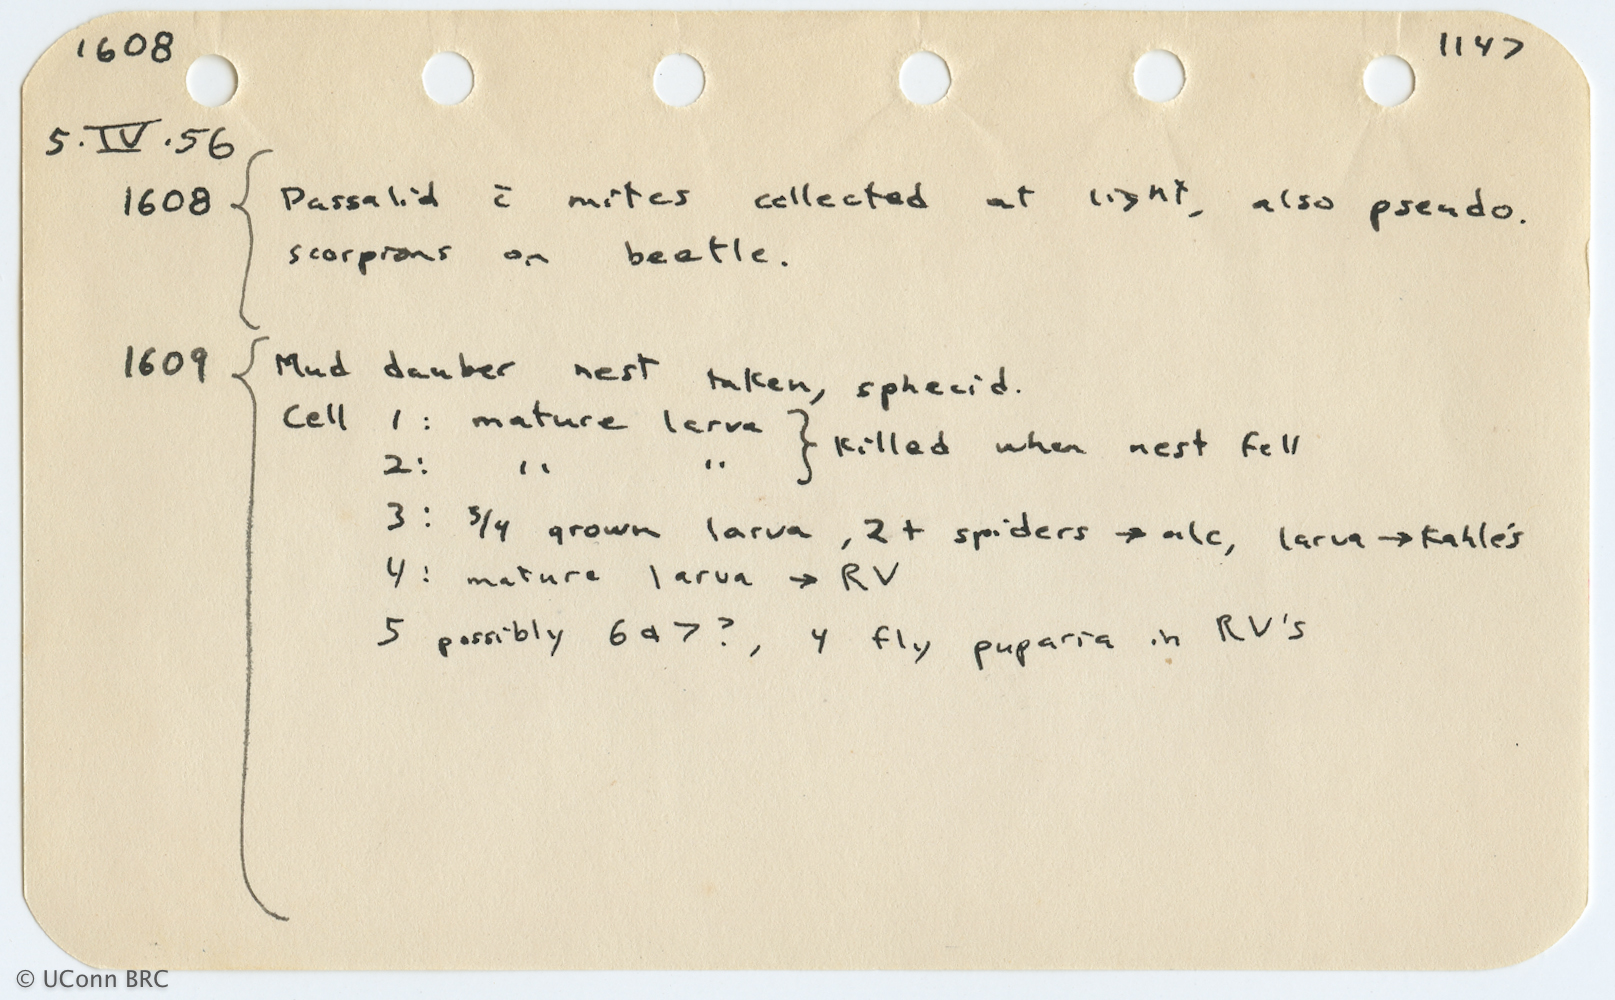 1608 1147
5.IV.56
1608 { Passalid c̄ mites collected at light, also pseudo.
scorpions on beetle.
1609 { Mud dauber nest taken, sphecid.
Cell 1: mature larva } killed when nest fell
2: " "
3: 3/4 grown larva, 2+ spiders → alc, larva → Kahle's
4: mature larva → RV
5 possibly 6 & 7?, 4 fly puparia in RV's
© UConn BRC